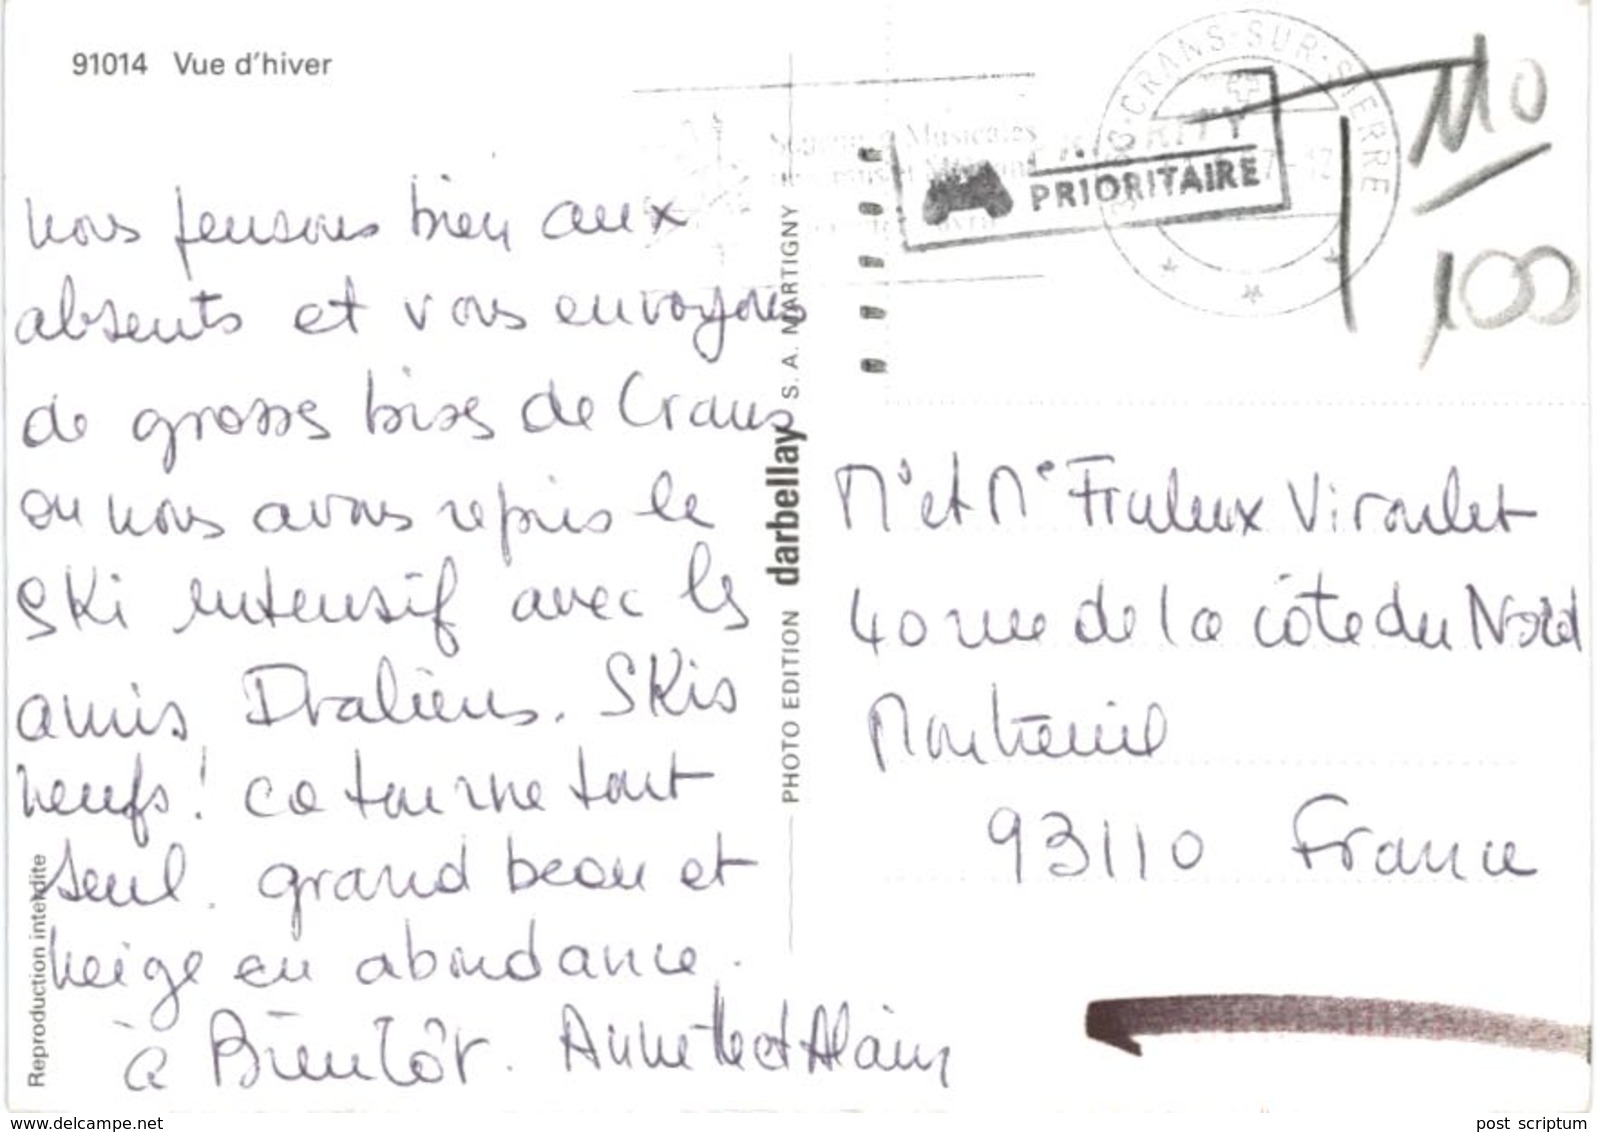 91014 Vue d'hiver
nous pensons bien aux
absents et vous envoyons
de grosses bises de Crans
ou nous avons repris le
Ski intensif avec les
amis Italiens. Skis
neufs! ca tourne tout
seul. grand beau et
neige en abondance.
à Bientôt. Annette et Alain
Reproduction interdite
PHOTO EDITION darbellay S. A. MARTIGNY
CRANS-SUR-SIERRE
Musicales
PRIORITY
PRIORITAIRE
110
100
Mr et Me Viroulet
40 rue de la côte du Nord
Montreuil
93110 France
www.delcampe.net
post scriptum